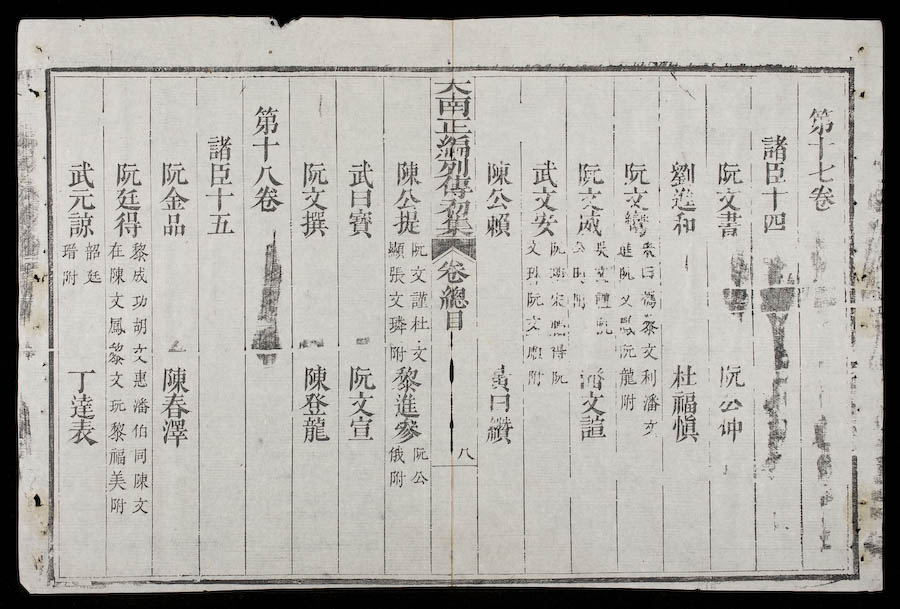 第十七卷
諸臣十四
阮文書 阮公仲
劉進和 杜福慎
阮文 黎文利潘文
進阮文鳳阮龍附
阮文威 潘文誼
武文安 阮 宋 得阮
文 阮文 附
陳公賴 黃曰纘
大南正編列傳初集 卷總目 八
陳公提 阮文謹杜文
顯張文璘附 黎進參 阮公
俄附
武曰寶 阮文宣
阮文撰 陳登龍
第十八卷
諸臣十五
阮金品 陳春澤
阮廷得 黎成功胡文惠潘伯同陳文
在陳文鳳黎文玩黎福美附
武元諒 韶廷
瑨附 丁達表